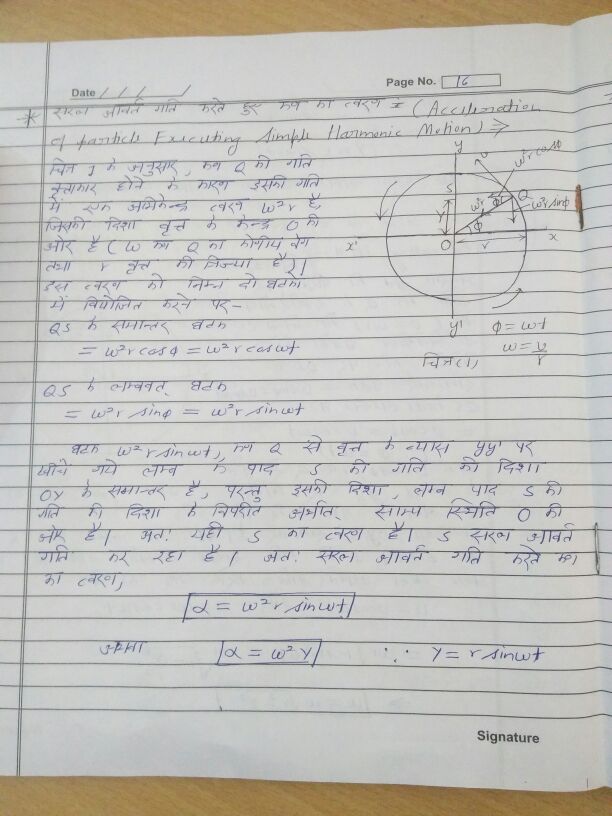 Date / / /
Page No. 16
* सरल आवर्त गति करते हुए कण का त्वरण = (Acceleration
of particle Executing Simple Harmonic Motion) ⇒
चित्र 1 के अनुसार, कण Q की गति
वृत्ताकार होने के कारण इसकी गति
में एक अभिकेन्द्र त्वरण ω²r है,
जिसकी दिशा वृत्त के केन्द्र O की
ओर है (ω कण Q का कोणीय वेग
तथा r वृत्त की त्रिज्या है)।
इस त्वरण को निम्न दो घटकों
में वियोजित करने पर -
QS के समान्तर घटक
= ω²r cosϕ = ω²r cosωt
QS के लम्बवत् घटक
= ω²r sinϕ = ω²r sinωt
y
v
ω²r cosϕ
S
Q
ω²r
ω²r sinϕ
Y
ϕ
ϕ
x'
O
r
x
y'
ϕ = ωt
ω = v/r
चित्र (1)
घटक ω²r sinωt, कण Q से वृत्त के व्यास yy' पर
खींचे गये लम्ब के पाद S की गति की दिशा
OY के समान्तर है, परन्तु इसकी दिशा, लम्ब पाद S की
गति की दिशा के विपरीत अर्थात् साम्य स्थिति O की
ओर है। अतः यही S का त्वरण है। S सरल आवर्त
गति कर रहा है। अतः सरल आवर्त गति करते कण
का त्वरण,
α = ω²r sinωt
अथवा α = ω²Y ∵ Y = r sinωt
Signature